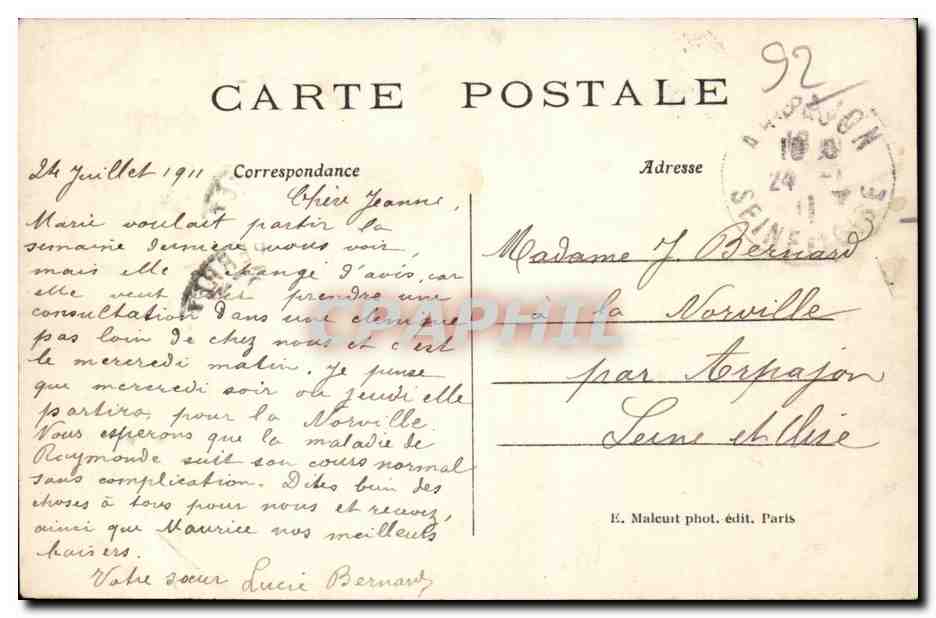 92
CARTE POSTALE
ARPAJON
24
11
SEINE-ET-OISE
24 Juillet 1911 Correspondance
Adresse
Chère Jeanne,
Marie voulait partir la
semaine dernière vous voir,
mais elle a changé d'avis, car
elle veut prendre une
consultation dans une clinique
pas loin de chez nous et c'est
le mercredi matin. Je pense
que mercredi soir ou jeudi elle
partira pour la Norville.
Nous esperons que la maladie de
Raymonde suit son cours normal
sans complication. Dites bien des
choses à tous pour nous et recevez,
ainsi que Maurice nos meilleurs
baisers.
Votre sœur Lucie Bernard
Madame J. Bernard
à la Norville
par Arpajon
Seine et Oise
E. Malcuit phot. édit. Paris
CPAPHIL